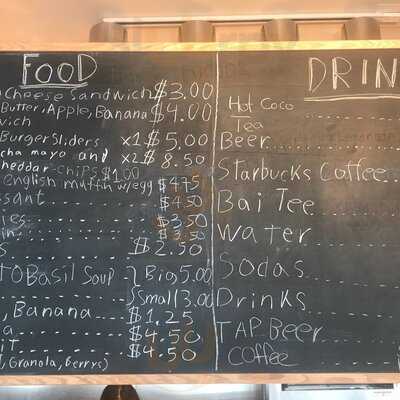 FOOD
Cheese Sandwich $3.00
Butter, Apple, Banana $4.00
wich
Burger Sliders x1 $5.00
cha mayo and x2 $8.50
heddar chips $1.00
English muffin w/egg $4.75
ssant $4.50
ies $3.50
in $3.50
s $2.50
TO Basil Soup } Big 5.00
Small 3.00
, Banana $1.25
a $4.50
it $4.50
, Granola, Berrys)
DRIN
Hot Coco
Tea
Beer
Starbucks Coffee
Bai Tee
Water
Sodas
Drinks
TAP Beer
Coffee